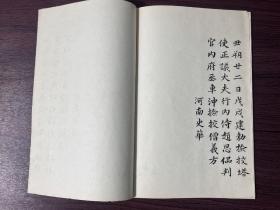 丑朔廿二日戊戌建勑檢校塔
使正議大夫行內侍趙思偘判
官內府丞車沖檢校僧義方
河南史華